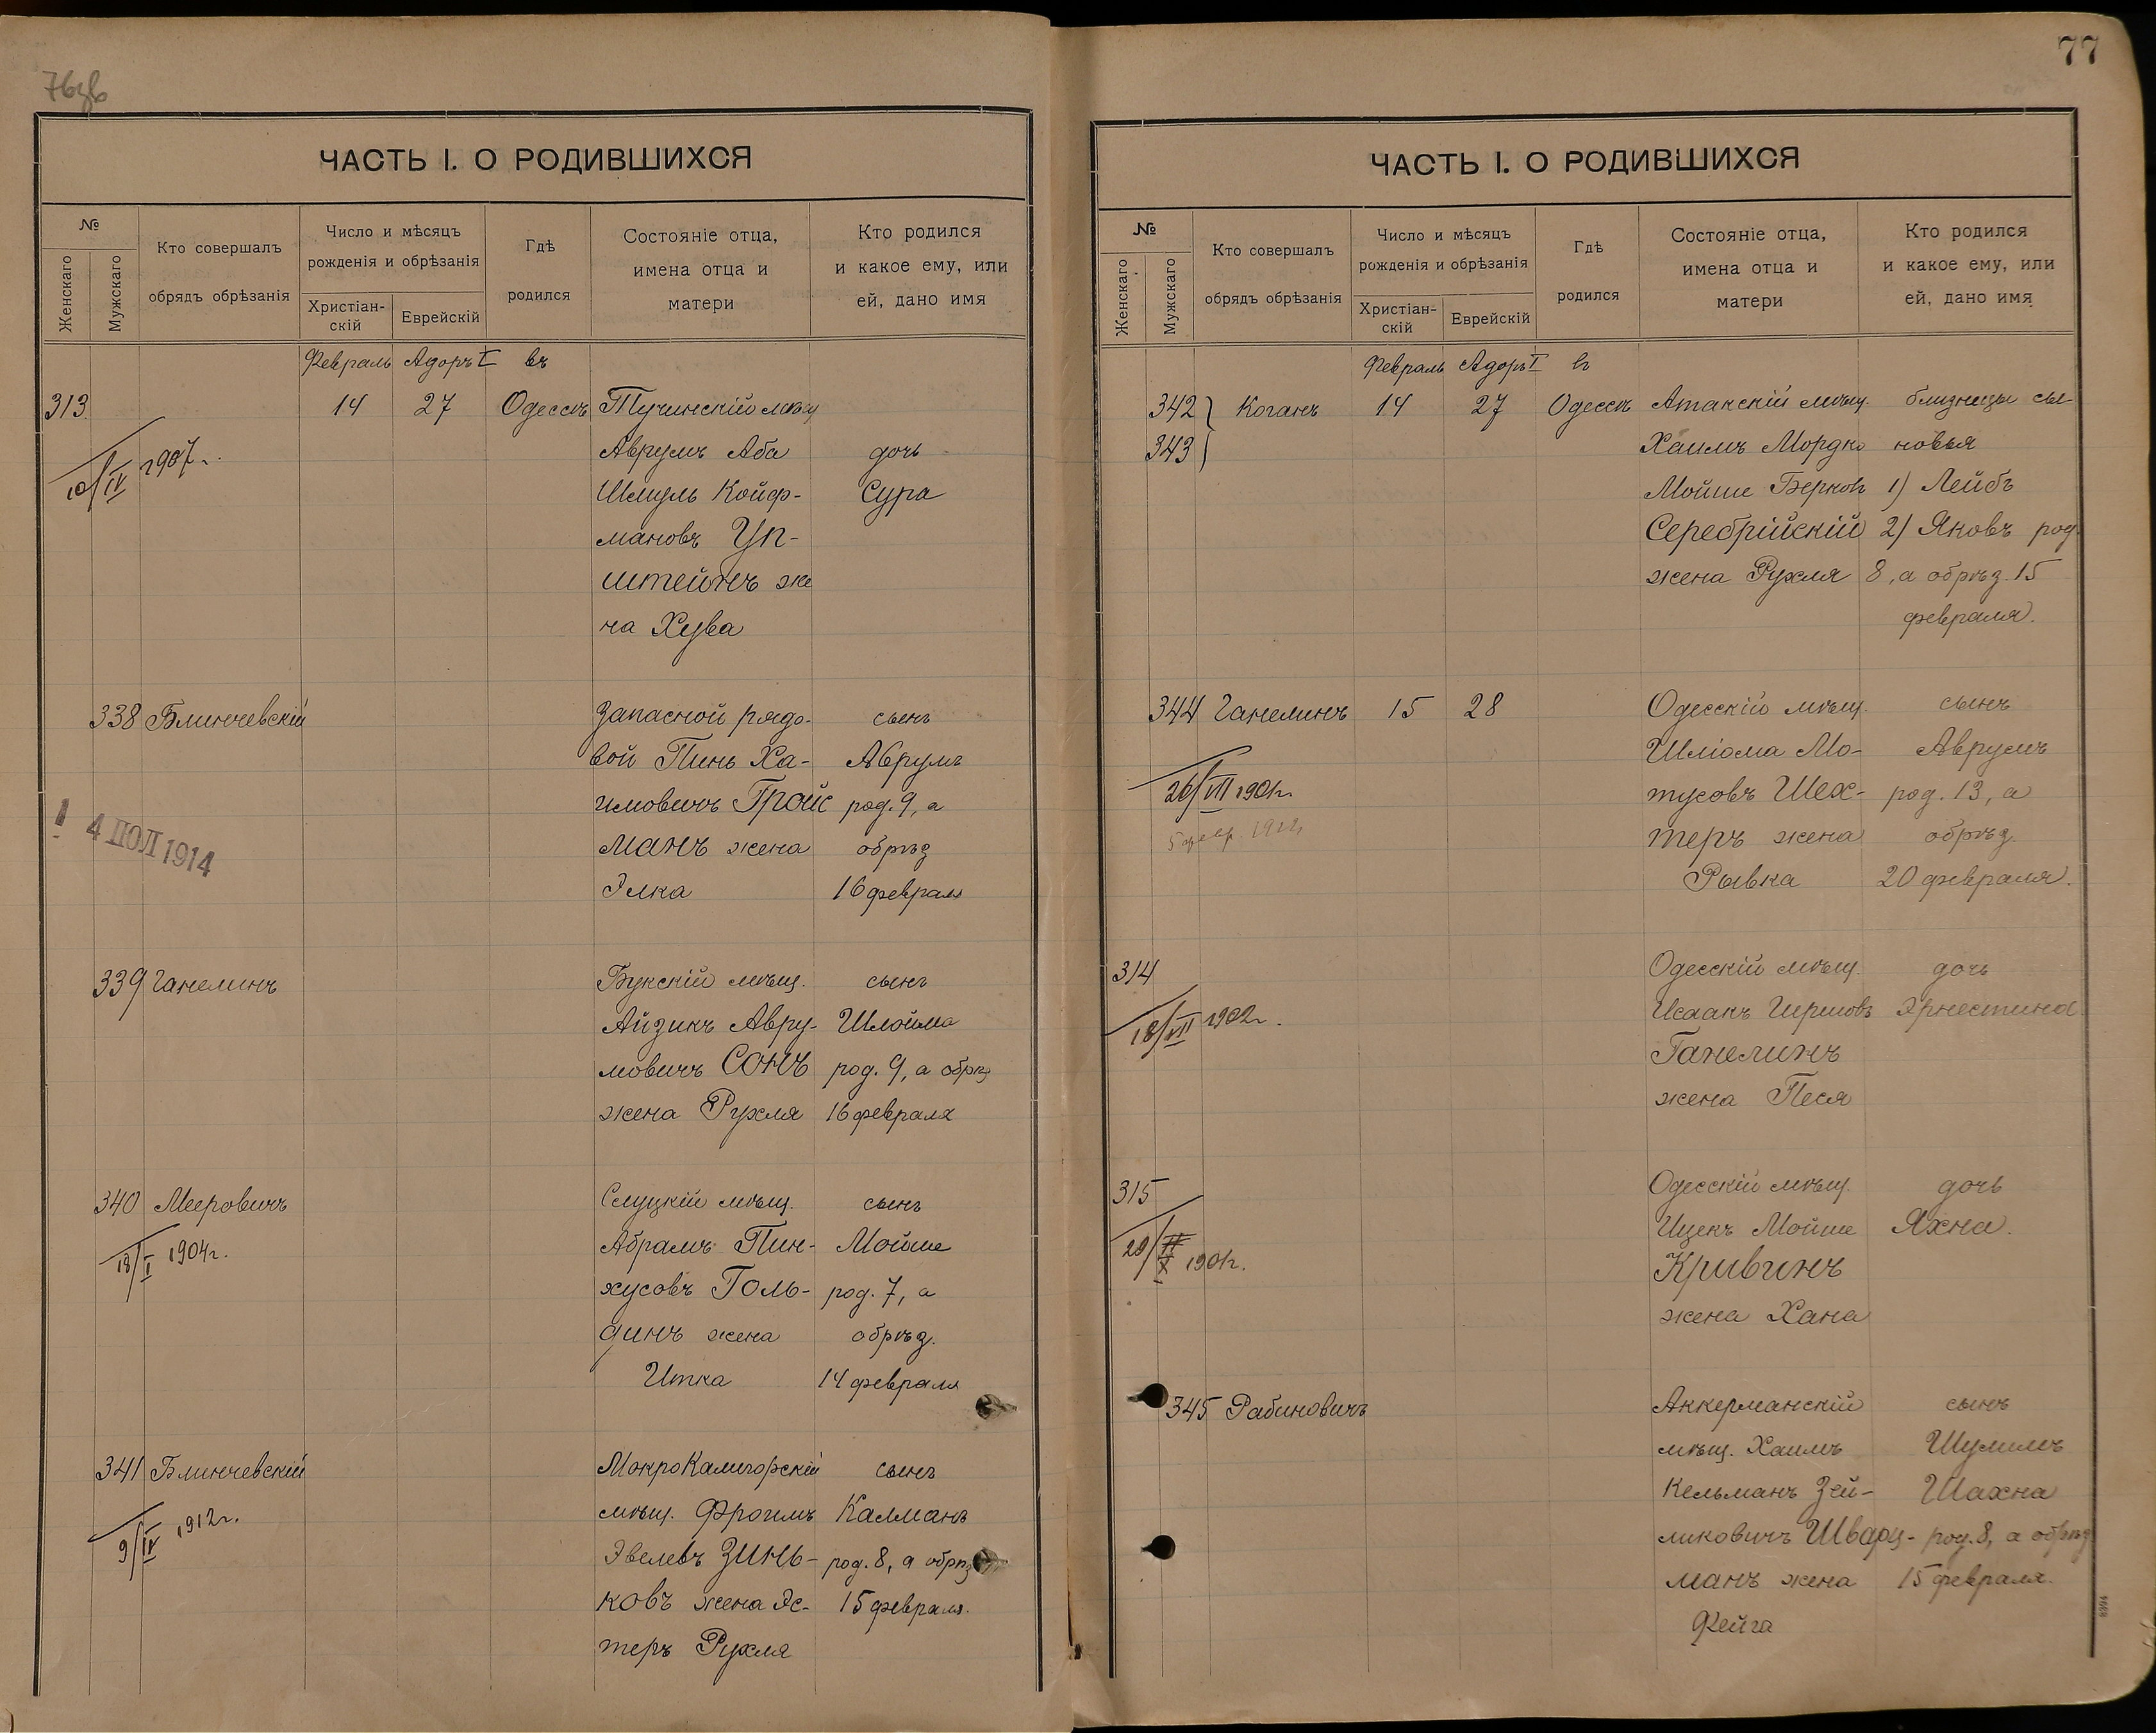 76об
ЧАСТЬ I. О РОДИВШИХСЯ
№
Женскаго
Мужскаго
Кто совершалъ
обрядъ обрѣзанія
Число и мѣсяцъ
рожденія и обрѣзанія
Христіан-
скій
Еврейскій
Гдѣ
родился
Состояніе отца,
имена отца и
матери
Кто родился
и какое ему, или
ей, дано имя
Февраль Адоръ I въ
313 14 27 Одессѣ Тучинскій мѣщ
Аврумъ Аба дочь
Шмуль Койф- Сура
мановъ Уп-
штейнъ же
на Хува
10/IV 1907г.
338 Блинчевскій Запасной рядо- сынъ
вой Пинь Ха- Аврумъ
имовичъ Гройс род. 9, а
манъ жена обрѣз
Элка 16 февраля
4 ИЮЛ 1914
339 Ганелинъ Букскій мѣщ. сынъ
Айзикъ Авру- Шлойма
мовичъ Сонъ род. 9, а обрѣз
жена Рухля 16 февраля
340 Мееровичъ Слуцкій мѣщ. сынъ
Абрамъ Пин- Мойше
хусовъ Голь- род. 7, а
динъ жена обрѣз.
Итка 14 февраля
18/I 1904г.
341 Блинчевскій МокроКалигорскій сынъ
мѣщ. Фроимъ Калманъ
Эвелевъ Зинь- род. 8, а обрѣз
ковъ жена Эс- 15 февраля.
теръ Рухля
9/IV 1912г.
77
ЧАСТЬ I. О РОДИВШИХСЯ
№
Женскаго
Мужскаго
Кто совершалъ
обрядъ обрѣзанія
Число и мѣсяцъ
рожденія и обрѣзанія
Христіан-
скій
Еврейскій
Гдѣ
родился
Состояніе отца,
имена отца и
матери
Кто родился
и какое ему, или
ей, дано имя
Февраль Адоръ I въ
342 Коганъ 14 27 Одессѣ Атакскій мѣщ. близнецы сы-
343 Хаимъ Мордко новья
Мойше Берковъ 1) Лейбъ
Серебрійскій 2) Яковъ род.
жена Рухля 8, а обрѣз. 15
февраля.
344 Ганелинъ 15 28 Одесскій мѣщ. сынъ
Шліома Мо- Аврумъ
тусовъ Шех- род. 13, а
теръ жена обрѣз.
Рывка 20 февраля.
26/VII 1901г.
314 Одесскій мѣщ. дочь
Исаакъ Гиршовъ Эрнестина.
Ганелинъ
жена Песя
18/VII 1902г.
315 Одесскій мѣщ. дочь
Ицекъ Мойше Яхна.
Кривинъ
жена Хана
20/X 1901г.
345 Рабиновичъ Аккерманскій сынъ
мѣщ. Хаимъ Шулимъ
Кельманъ Зей- Шахна
ликовичъ Шварц- род. 8, а обрѣз
манъ жена 15 февраля.
Фейга